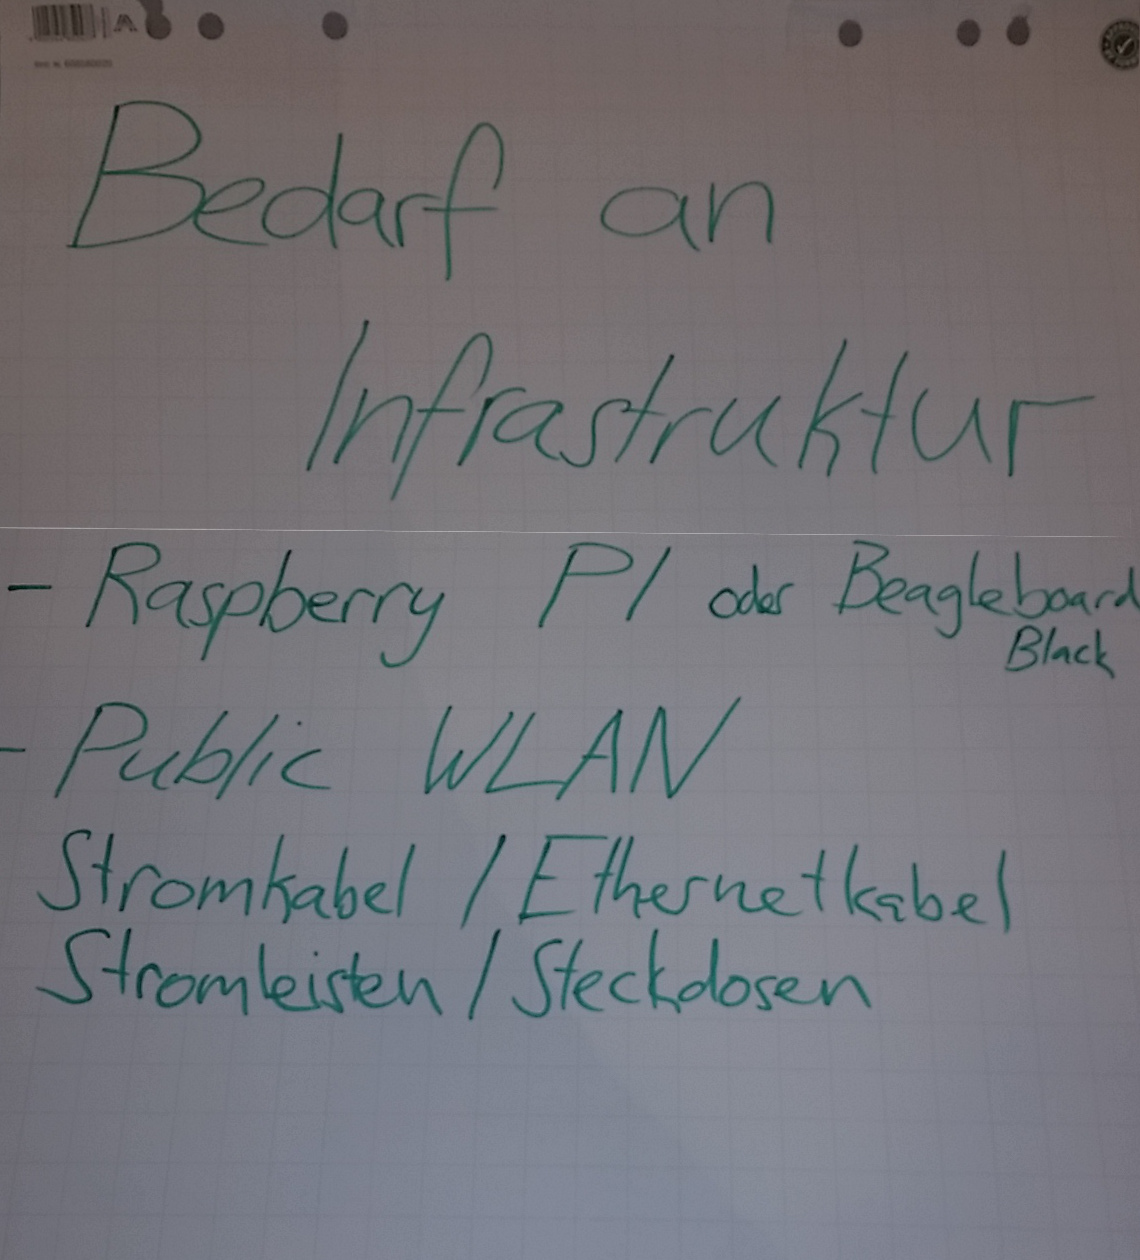 Bedarf an
Infrastruktur
- Raspberry PI oder Beagleboard
Black
- Public WLAN
Stromkabel / Ethernetkabel
Stromleisten / Steckdosen